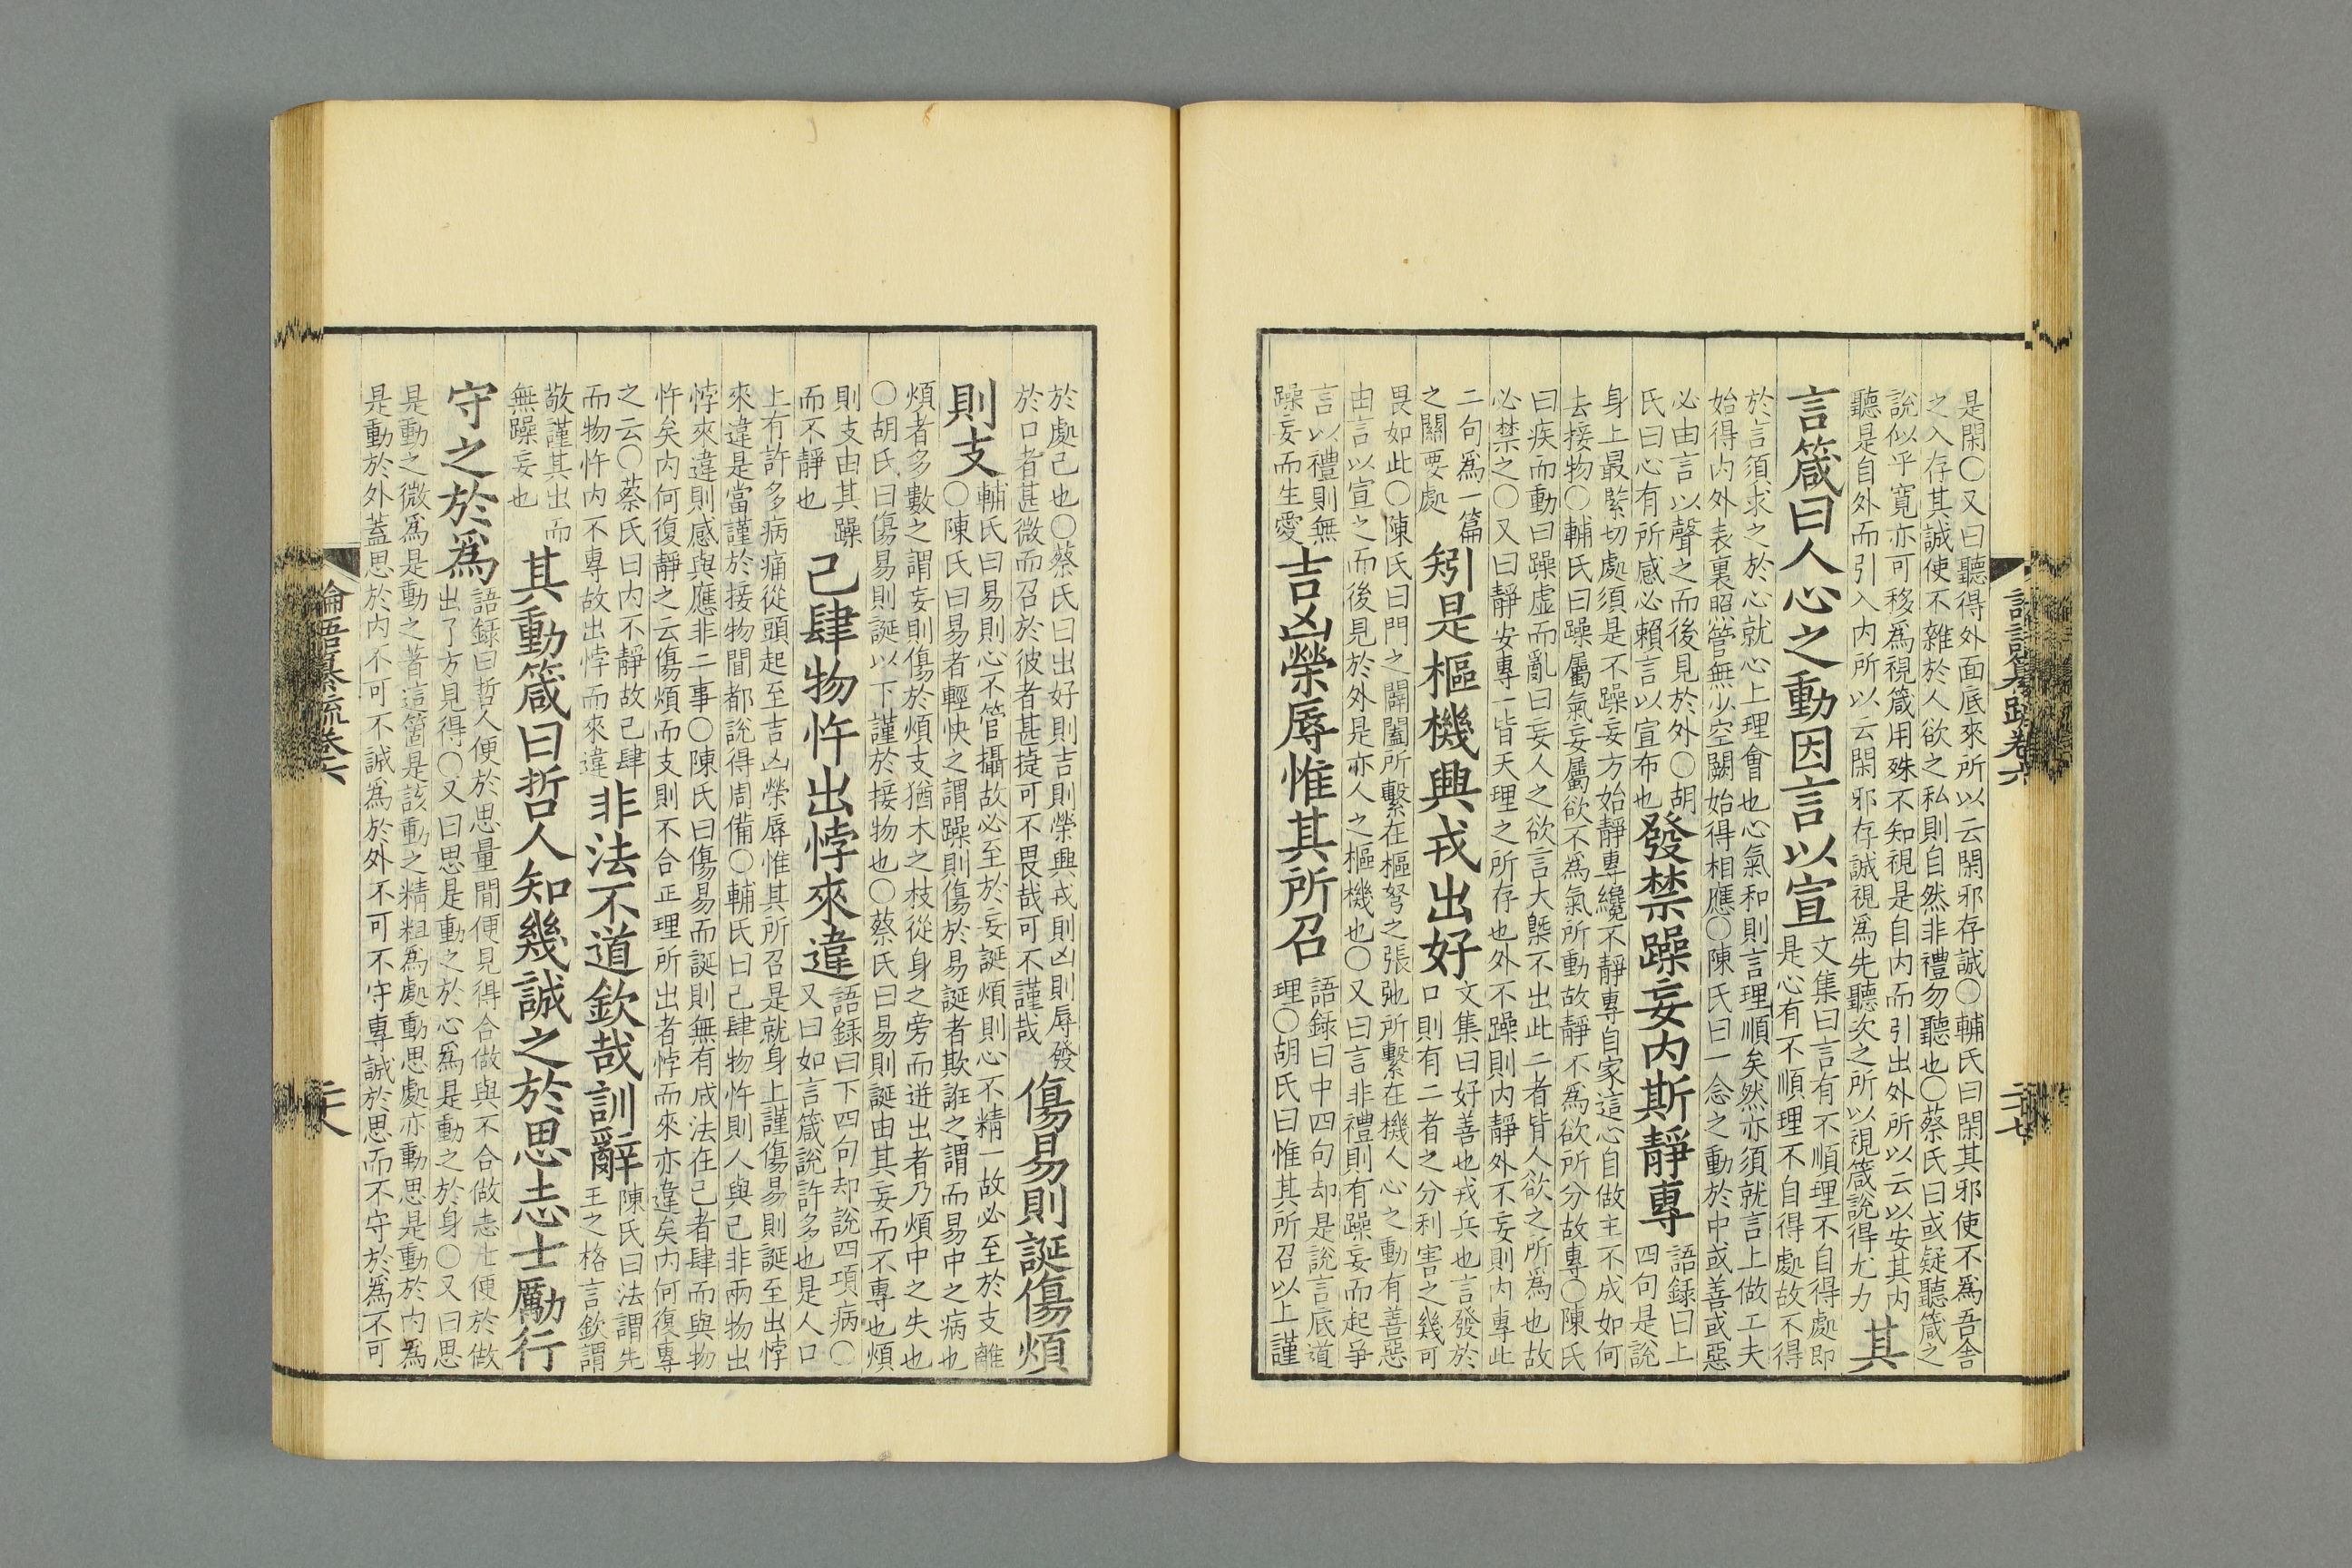 是閑〇又曰聽得外面底來所以云閑邪存誠〇輔氏曰閑其邪使不爲吾舍
之入存其誠使不雜於人欲之私則自然非禮勿聽也〇蔡氏曰或疑聽箴之
說似乎寬亦可移爲視箴用殊不知視是自內而引出外所以云以安其內
聽是自外而引入內所以云閑邪存誠視爲先聽次之所以視箴說得尤力
其
言箴曰人心之動因言以宣
文集曰言有不順理不自得處即
是心有不順理不自得處故不得
於言須求之於心就心上理會也心氣和則言理順矣然亦須就言上做工夫
始得內外表裏照管無少空闕始得相應〇陳氏曰一念之動於中或善或惡
必由言以聲之而後見於外〇胡
氏曰心有所感必賴言以宣布也
發禁躁妄內斯靜專
語錄曰上
四句是說
身上最緊切處須是不躁妄方始靜專纔不靜專自家這心自做主不成如何
去接物〇輔氏曰躁屬氣妄屬欲不爲氣所動故靜不爲欲所分故專〇陳氏
曰疾而動曰躁虛而亂曰妄人之欲言大槩不出此二者皆人欲之所爲也故
必禁之〇又曰靜安專一皆天理之所存也外不躁則內靜外不妄則內專此
二句爲一篇
之關要處
矧是樞機興戎出好
文集曰好善也戎兵也言發於
口則有二者之分利害之幾可
畏如此〇陳氏曰門之闢闔所繫在樞弩之張弛所繫在機人心之動有善惡
由言以宣之而後見於外是亦人之樞機也〇又曰言非禮則有躁妄而起爭
言以禮則無
躁妄而生愛
吉凶榮辱惟其所召
語錄曰中四句却是說言底道
理〇胡氏曰惟其所召以上謹
於處己也〇蔡氏曰出好則吉則榮興戎則凶則辱發
於口者甚微而召於彼者甚㨗可不畏哉可不謹哉
傷易則誕傷煩
則支
輔氏曰易則心不管攝故必至於妄誕煩則心不精一故必至於支離
〇陳氏曰易者輕快之謂躁則傷於易誕者欺誑之謂而易中之病也
煩者多數之謂妄則傷於煩支猶木之枝從身之旁而迸出者乃煩中之失也
〇胡氏曰傷易則誕以下謹於接物也〇蔡氏曰易則誕由其妄而不專也煩
則支由其躁
而不靜也
己肆物忤出悖來違
語錄曰下四句却說四項病〇
又曰如言箴說許多也是人口
上有許多病痛從頭起至吉凶榮辱惟其所召是就身上謹傷易則誕至出悖
來違是當謹於接物間都說得周備〇輔氏曰己肆物忤則人與己非兩物出
悖來違則感與應非二事〇陳氏曰傷易而誕則無有成法在己者肆而與物
忤矣內何復靜之云傷煩而支則不合正理所出者悖而來亦違矣內何復專
之云〇蔡氏曰內不靜故己肆
而物忤內不專故出悖而來違
非法不道欽哉訓辭
陳氏曰法謂先
王之格言欽謂
敬謹其出而
無躁妄也
其動箴曰哲人知幾誠之於思志士勵行
守之於爲
語錄曰哲人便於思量間便見得合做與不合做志士便於做
出了方見得〇又曰思是動之於心爲是動之於身〇又曰思
是動之微爲是動之著這箇是該動之精粗爲處動思處亦動思是動於內爲
是動於外蓋思於內不可不誠爲於外不可不守專誠於思而不守於爲不可